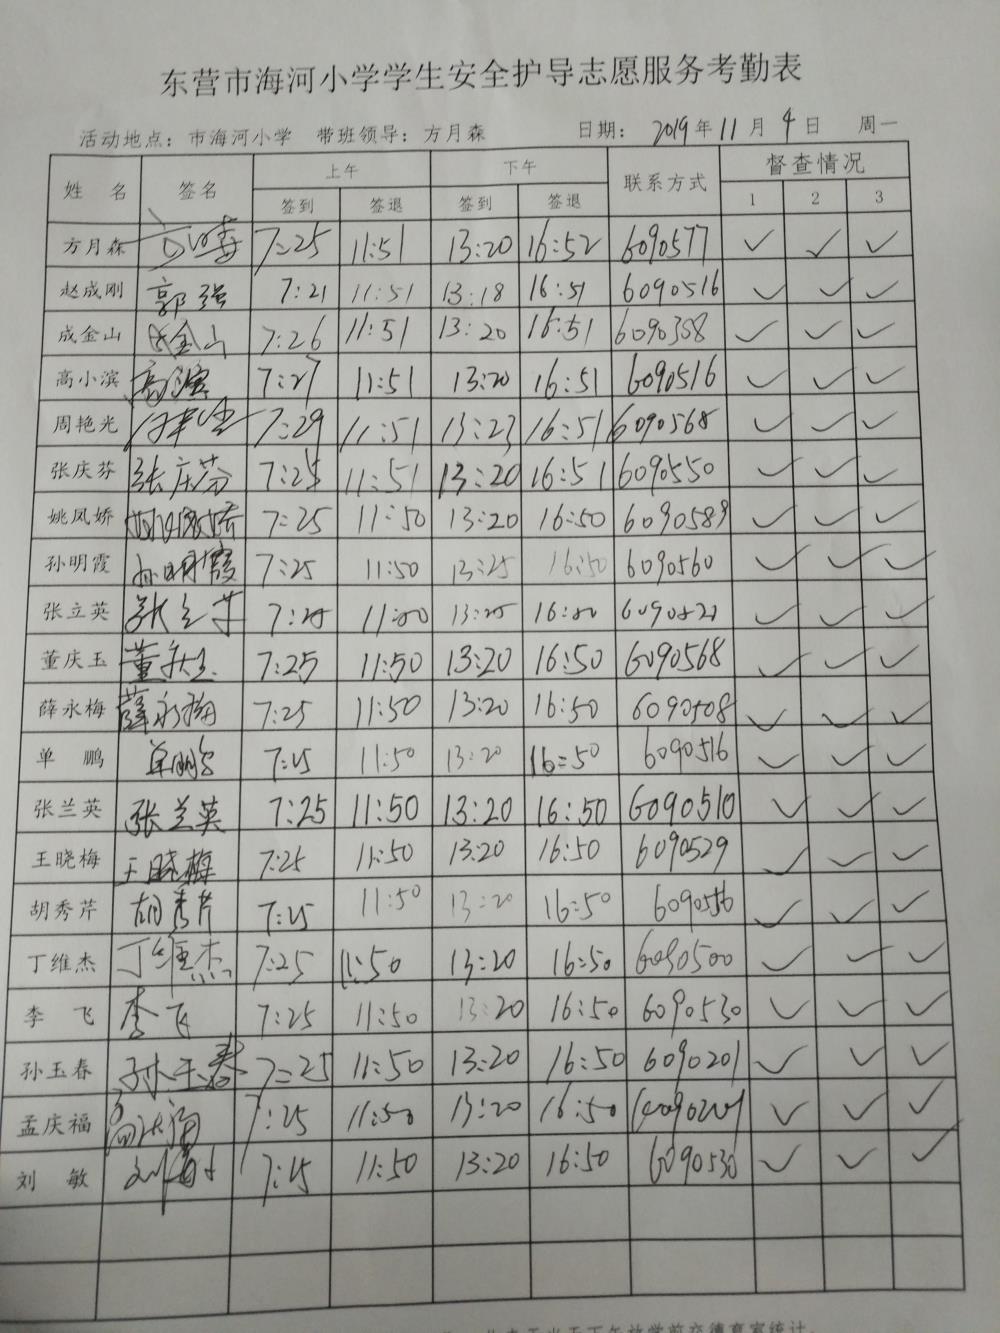 东营市海河小学学生安全护导志愿服务考勤表
活动地点：市海河小学 带班领导：方月森 日期： 2019年11月4日 周一
姓 名 签名 上午 下午 联系方式 督查情况
签到 签退 签到 签退 1 2 3
方月森 7:25 11:51 13:20 16:52 6090577 ✓ ✓ ✓
赵成刚 郭强 7:21 11:51 13:18 16:51 6090516 ✓ ✓ ✓
成金山 成金山 7:26 11:51 13:20 16:51 6090358 ✓ ✓ ✓
高小滨 高滨 7:27 11:51 13:20 16:51 6090516 ✓ ✓ ✓
周艳光 7:29 11:51 13:23 16:51 6090568 ✓ ✓ ✓
张庆芬 张庆芬 7:25 11:51 13:20 16:51 6090550 ✓ ✓ ✓
姚凤娇 7:25 11:50 13:20 16:50 6090589 ✓ ✓ ✓
孙明霞 孙明霞 7:25 11:50 13:25 16:50 6090560 ✓ ✓ ✓
张立英 张立英 7:25 11:50 13:25 16:50 6090521 ✓ ✓ ✓
董庆玉 董庆玉 7:25 11:50 13:20 16:50 6090568 ✓ ✓ ✓
薛永梅 薛永梅 7:25 11:50 13:20 16:50 6090508 ✓ ✓ ✓
单 鹏 单鹏 7:25 11:50 13:20 16:50 6090516 ✓ ✓ ✓
张兰英 张兰英 7:25 11:50 13:20 16:50 6090510 ✓ ✓ ✓
王晓梅 王晓梅 7:25 11:50 13:20 16:50 6090529 ✓ ✓ ✓
胡秀芹 胡秀芹 7:25 11:50 13:20 16:50 6090516 ✓ ✓ ✓
丁维杰 丁维杰 7:25 11:50 13:20 16:50 6090500 ✓ ✓ ✓
李 飞 李飞 7:25 11:50 13:20 16:50 6090530 ✓ ✓ ✓
孙玉春 孙玉春 7:25 11:50 13:20 16:50 6090201 ✓ ✓ ✓
孟庆福 孟庆福 7:25 11:50 13:20 16:50 6090201 ✓ ✓ ✓
刘 敏 刘敏 7:25 11:50 13:20 16:50 6090530 ✓ ✓ ✓
下午放学前交德育室统计